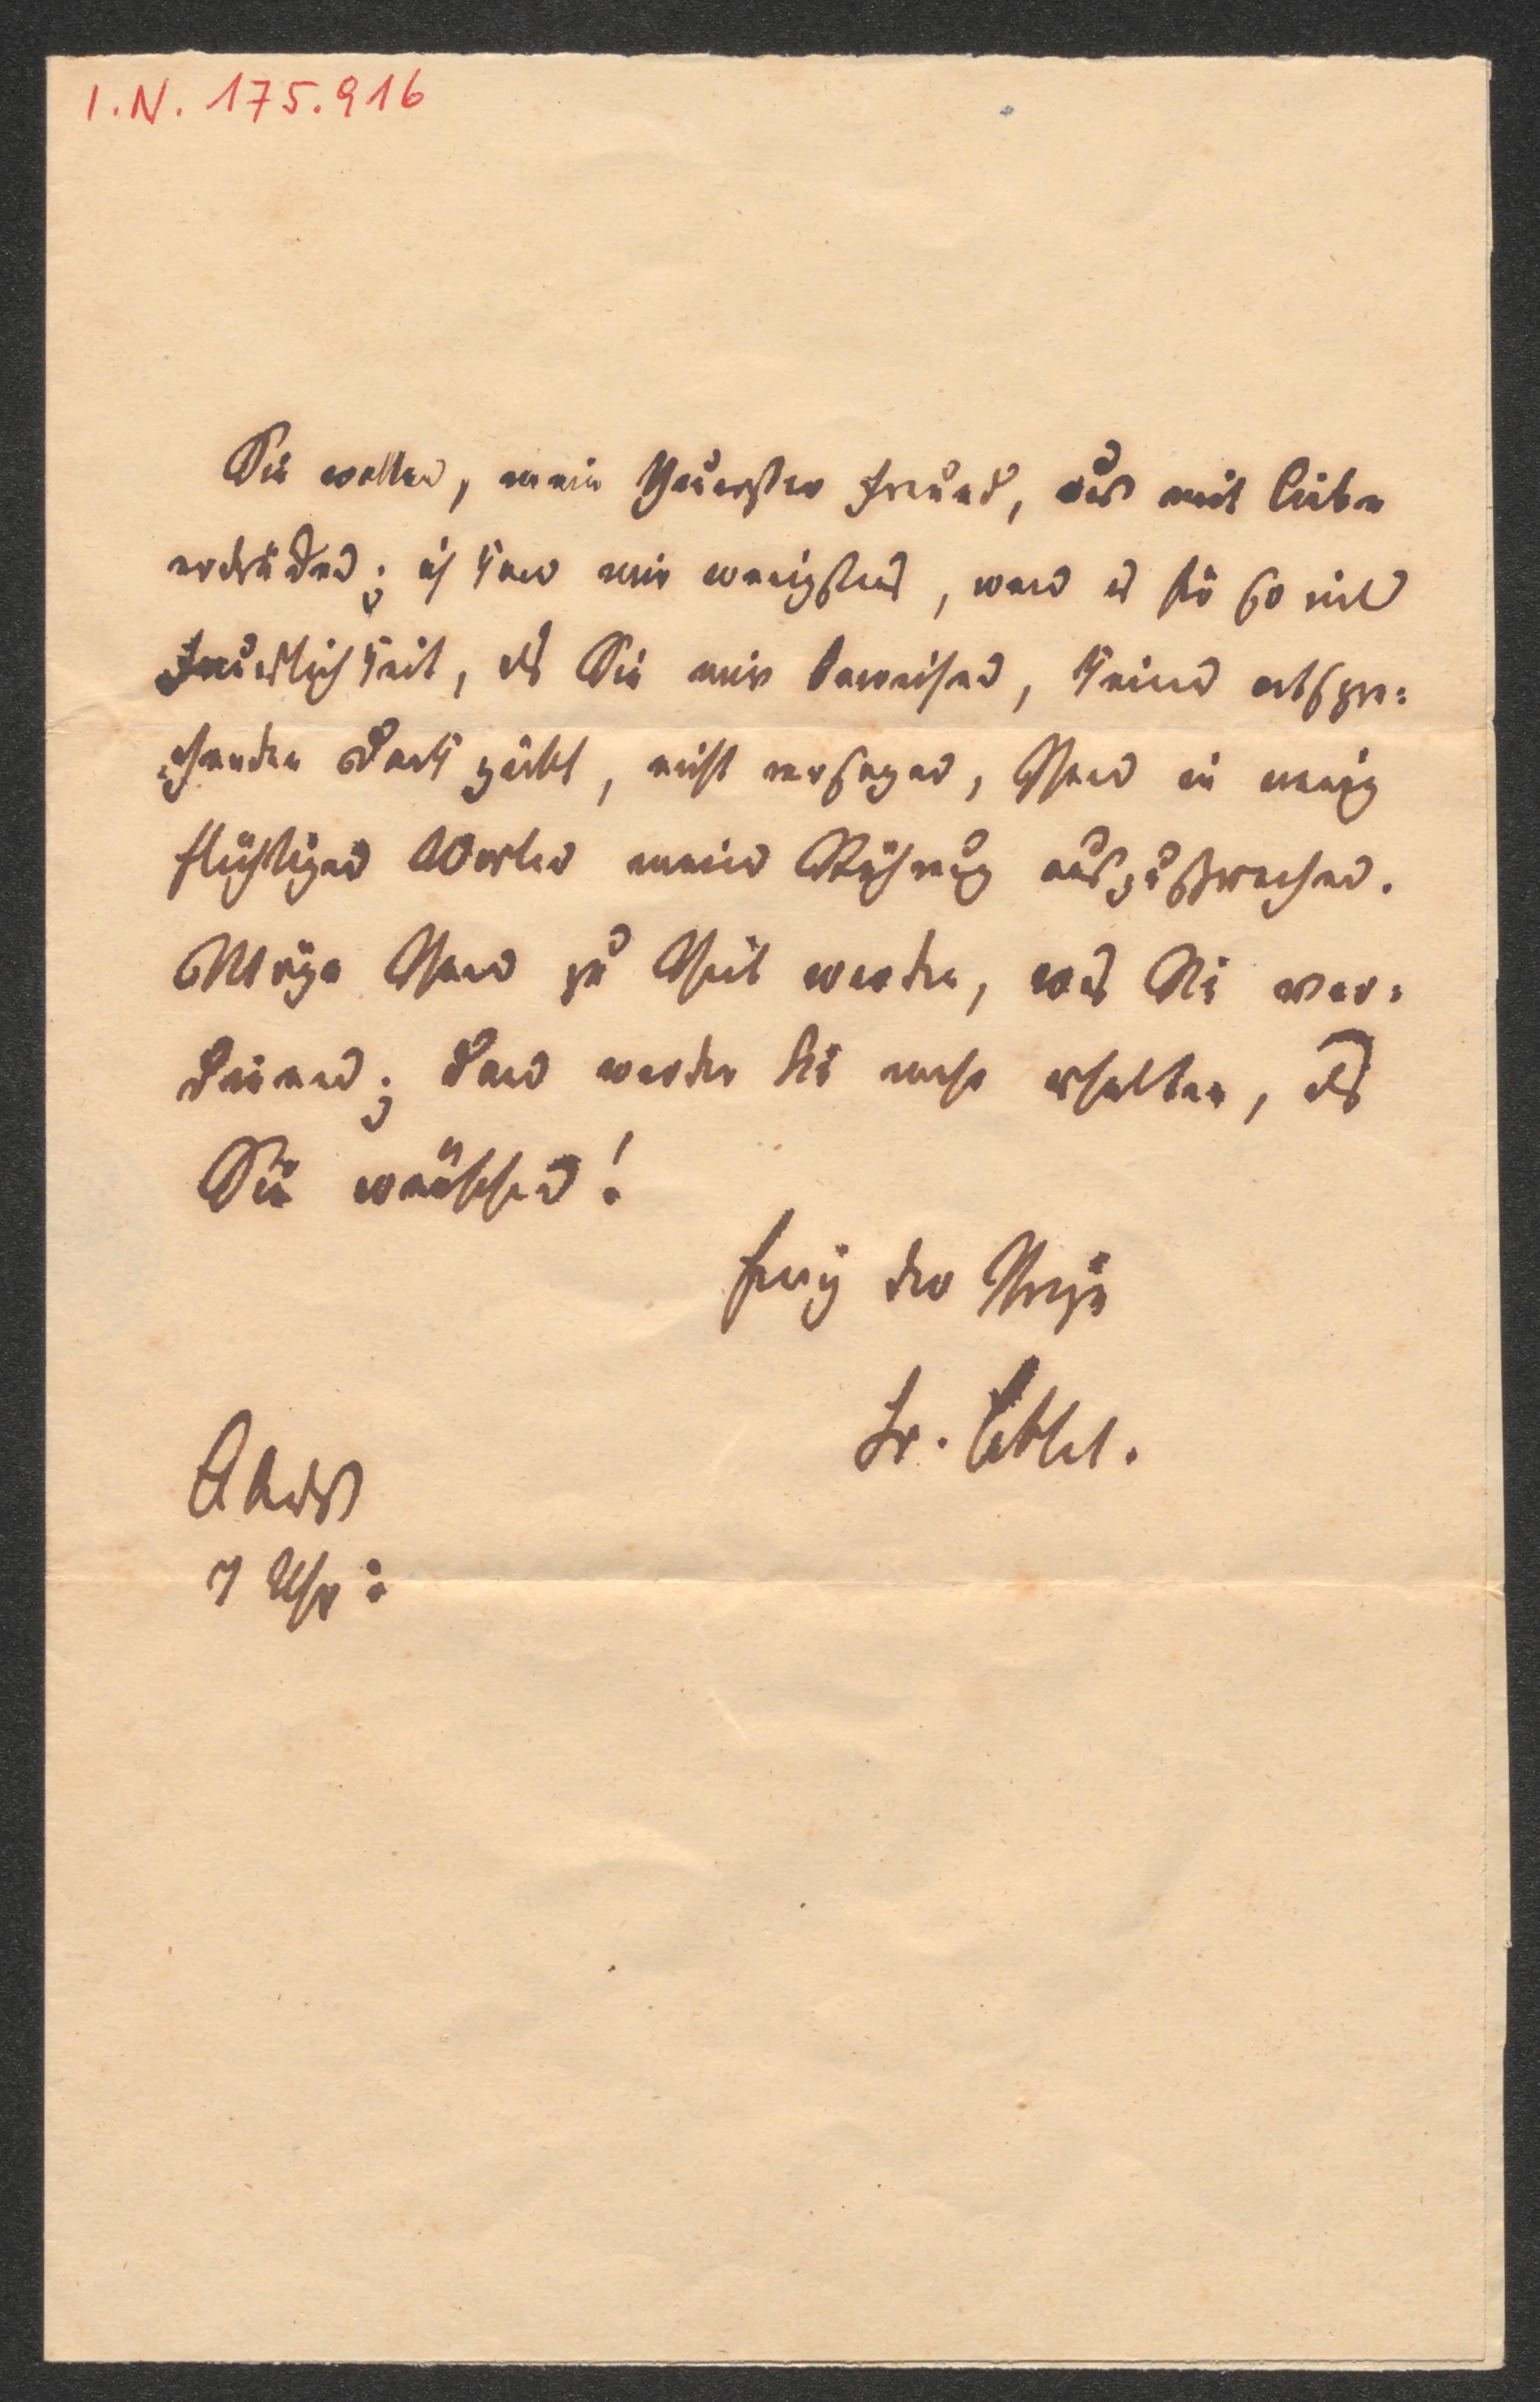 I.N. 175.916
Sie wollen, mein theuerster Freund, uns mit Liebe
erdrücken; ich kann mir wenigstens, wenn es für so viel
Freundlichkeit, als Sie mir beweisen, keinen entspre-
chenden Dank giebt, nicht versagen, Ihnen in wenig
flüchtigen Worten meine Rührung auszusprechen.
Möge Ihnen zu Theil werden, was Sie ver-
dienen; dann werden Sie mehr erhalten, als
Sie wünschen!
Ewig der Ihrige
Fr. Hebbel.
Abends
7 Uhr: